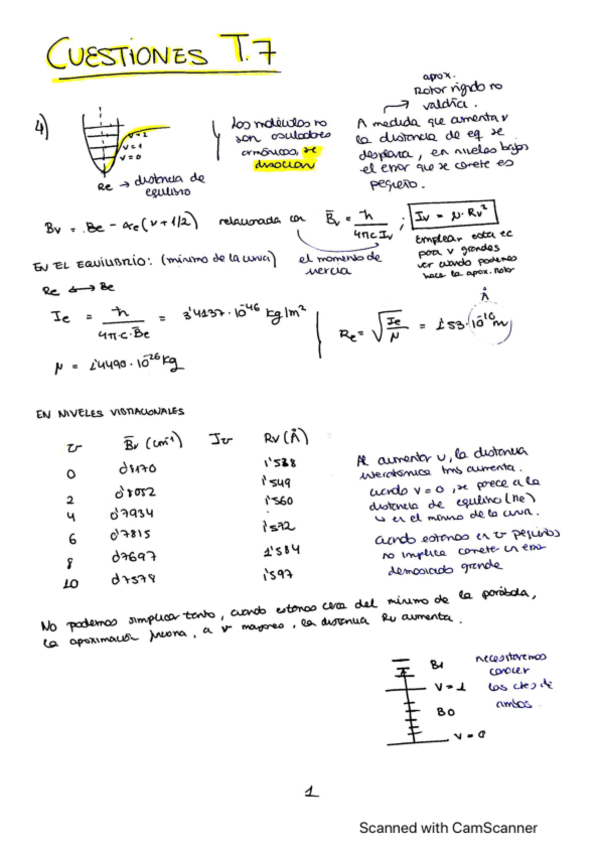 CUESTIONES T.7
4)
v=2
v=1
v=0
Re → distancia de
equilibrio
Las moléculas no
son osciladores
armónicos, se
disocian
aprox.
Rotor rígido no
valdría.
A medida que aumenta v
la distancia de eq se
desplaza, en niveles bajos
el error que se comete es
pequeño.
Bv = Be - αe(v + 1/2) relacionada con B̄v = h / 4πcIv ; Iv = μ·Rv²
el momento de
inercia
Emplear esta ec
para v grandes
ver cuando podemos
hace la aprox. rotor
EN EL EQUILIBRIO: (mínimo de la curva)
Re ↔ Be
Ie = h / 4π·c·B̄e = 3'4137·10⁻⁴⁶ kg/m²
Re = √(Ie/μ) = 1'53·10⁻¹⁰ m
Å
μ = 1'4490·10⁻²⁶ kg
EN NIVELES VIBRACIONALES
v B̄v (cm⁻¹) Iv Rv (Å)
0 0'8170 1'538
0'8052 1'549
2 0'7934 1'560
4 0'7815 1'572
6 0'7697 1'584
8 0'7579 1'597
10
Al aumentar v, la distancia
interatómica aumenta.
cuando v = 0, se parece a la
distancia de equilibrio (Re)
↳ en el mínimo de la curva.
cuando estamos en v pequeños
no implica cometer un error
demasiado grande
No podemos simplificar tanto, cuando estamos cerca del mínimo de la parábola,
la aproximación funciona, a v mayores, la distancia Rv aumenta.
B1
v = 1
B0
v = 0
necesitaremos
conocer
las ctes de
ambos.
1
Scanned with CamScanner